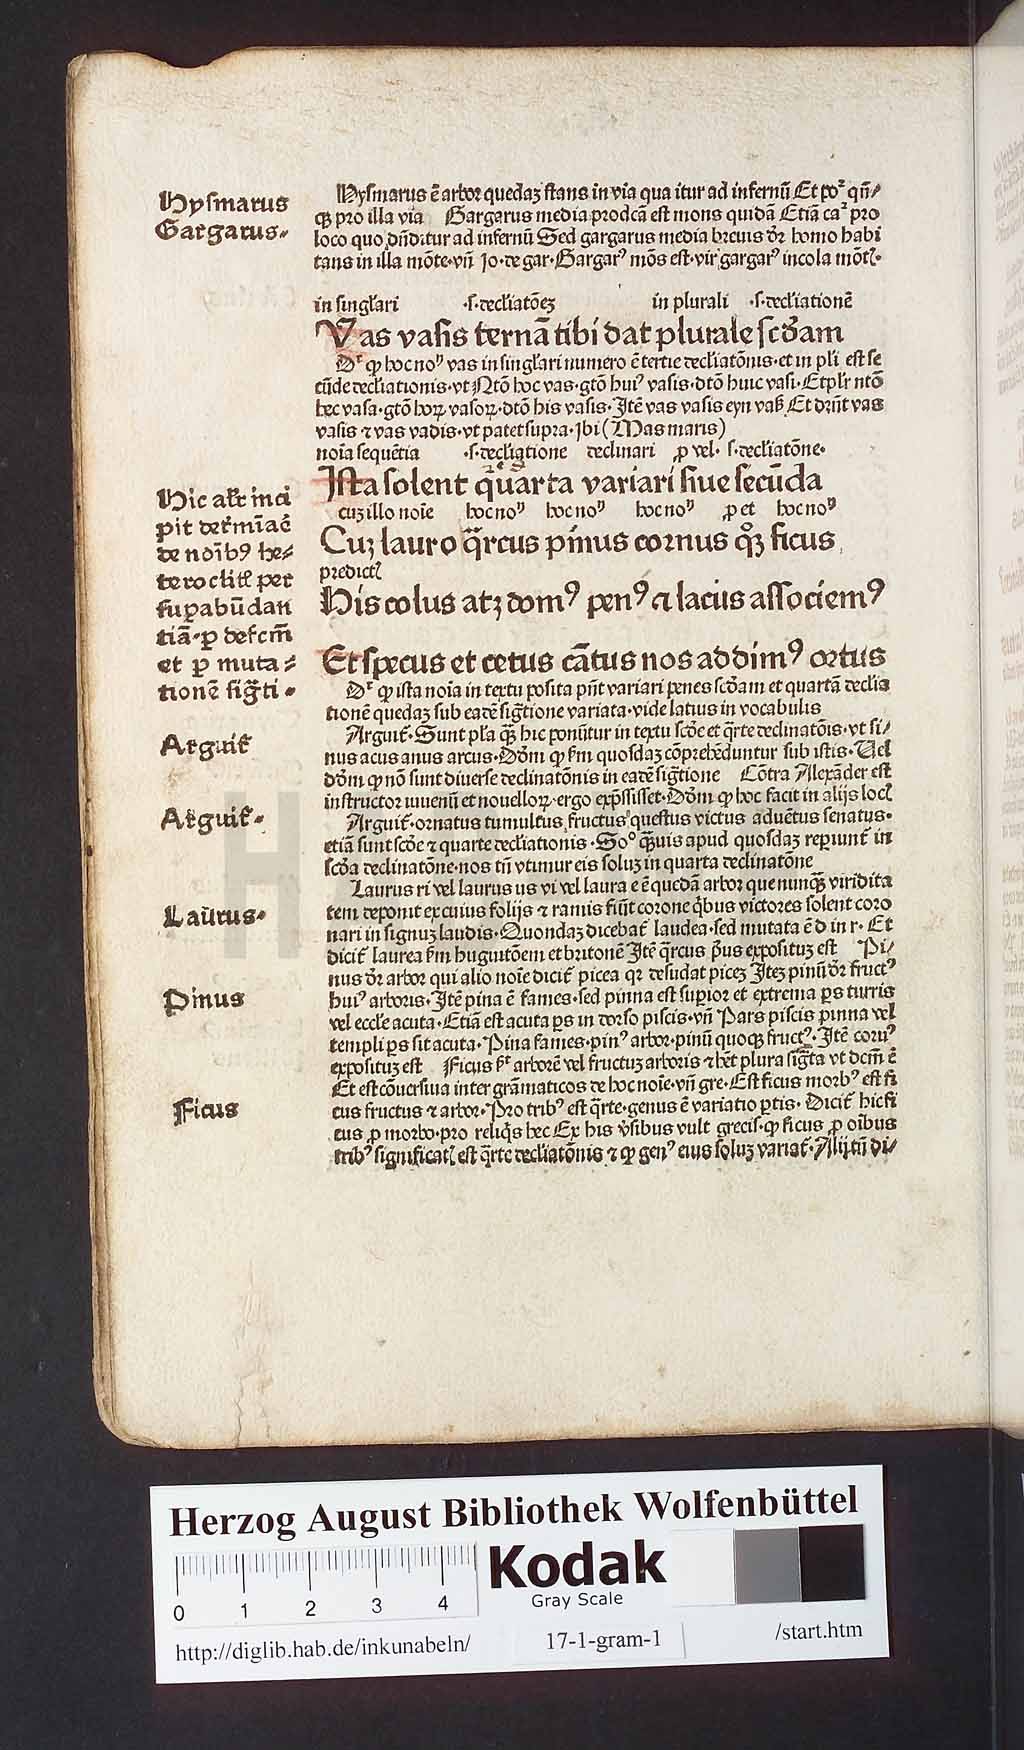 Hysmarus
Gargarus.
Hysmarus ē arbor quedaȝ stans in via qua itur ad infernū Et poꝛ̉ qn̄-
qȝ pro illa via Gargarus media prodcā est mons quidā Etiā caꝛ̉ pro
loco quo dn̄ditur ad infernū Sed gargarus media breuis dr̄ homo habi
tans in illa mōte. vn̄ Jo. de gar. Gargarꝰ mōs est. vir gargarꝰ incola mōtꝭ.
in singl̄ari .s. decl̄iatōeȝ in plurali .s. decl̄iationē
Vas vasis ternā tibi dat plurale scd̄am
Dꝛ̉ ꝙ hoc noᵛ vas in singl̄ari numero ē tertie decl̄iatōnis. et in pl̄i est se
cūde decl̄iationis. vt Ntō hoc vas. gtō huiꝰ vasis. dtō huic vasi. Et pl̄r ntō
hec vasa. gtō hoꝝ vasoꝝ. dtō his vasis. Jtē vas vasis eyn vaß Et dn̄t vas
vasis ⁊ vas vadis. vt patet supra. Jbi (Mas maris)
noīa sequētia .s. decl̄iatione declinari ꝓ vel. s. decl̄iatōne.
Hic al̄r inci
pit det̄mīaē
de noībꝰ he-
teroclitꝭ per
suꝑabūdan
tiā. ꝑ defcm̄
et ꝑ muta-
tionē sigt̄i.
Jsta solent quarta variari siue secūda
cuȝ illo noīe hoc noᵛ hoc noᵛ hoc noᵛ ꝓ et hoc noᵛ
Cuȝ lauro q̄rcus pīnus cornus qͦȝ ficus
predictꝭ
His colus atȝ domꝰ penꝰ ⁊ lacus associemꝰ
Et specus et cetus cātus nos addimꝰ ortus
Dꝛ̉ ꝙ ista noīa in textu posita pn̄t variari penes scd̄am et quartā declia
tionē quedaȝ sub eadē sigt̄ione variata. vide latius in vocabulis
Arguit̄
Arguit̄. Sunt pl̄a q̄ȝ hic ponūtur in textu scd̄e et q̄rte declinatōis. vt si-
nus acus anus arcus. Dōm ꝙ ẜm quosdaȝ cōprehēduntur sub istis. Uel
dōm ꝙ nō sunt diuerse declinatōnis in eadē sigt̄ione Cōtra Alexāder est
instructor iuuenū et nouelloꝝ. ergo expssisset. Dōm ꝙ hoc facit in alijs locꝭ
Arguit̄.
Arguit̄. ornatus tumultus fructus questus victus aduētus senatus.
etiā sunt scd̄e ⁊ quarte decl̄iationis. Soᵒ q̄ȝuis apud quosdaȝ reꝑiunt̄ in
scd̄a declinatōne. nos tn̄ vtimur eis soluȝ in quarta declinatōne
Laurus.
Laurus ri vel laurus us vi vel laura e ē quedā arbor que nunqȝ viridita
tem deponit ex cuius folijs ⁊ ramis fiūt corone q̄bus victores solent coro
nari in signuȝ laudis. Quondaȝ dicebat̄ laudea. sed mutata ē d in r. Et
dicit̄ laurea ẜm huguitōem et britonē Jtē q̄rcus pͥus expositus est Pi-
Pinus
nus dr̄ arbor qui alio noīe dicit̄ picea qꝛ desudat piceȝ Jteȝ pinū dr̄ fructꝰ
huiꝰ arboris. Jtē pina ē fames. sed pinna est suꝑior et extrema ꝑs turris
vel eccl̄e acuta. Etiā est acuta ꝑs in dorso piscis. vn̄ Pars piscis pinna vel
templi ꝑs sit acuta. Pina fames. pinꝰ arbor. pinū quoqȝ fructꝰ. Jtē corūꝰ
expositus est Ficus sꝛ̉ arborē vel fructuȝ arboris ⁊ hēt plura sigt̄a vt dcm̄ ē
Et est cōuersiua inter grāmaticos de hoc noīe. vn̄ gre. Est ficus morbꝰ est fi
Ficus
cus fructus ⁊ arbor. Pro tribꝰ est q̄rte. genus ē variatio ꝑtis. Dicit̄ hic fi
cus ꝓ morbo. pro reliqͥs hec Ex his v̄sibus vult grecis. ꝙ ficus ꝓ oībus
tribꝰ significatꝭ est q̄rte decl̄iatōnis ⁊ ꝙ genꝰ eius soluȝ variat̄. Alij tn̄ di-
Herzog August Bibliothek Wolfenbüttel
Kodak
Gray Scale
0 1 2 3 4
http://diglib.hab.de/inkunabeln/ 17-1-gram-1 /start.htm